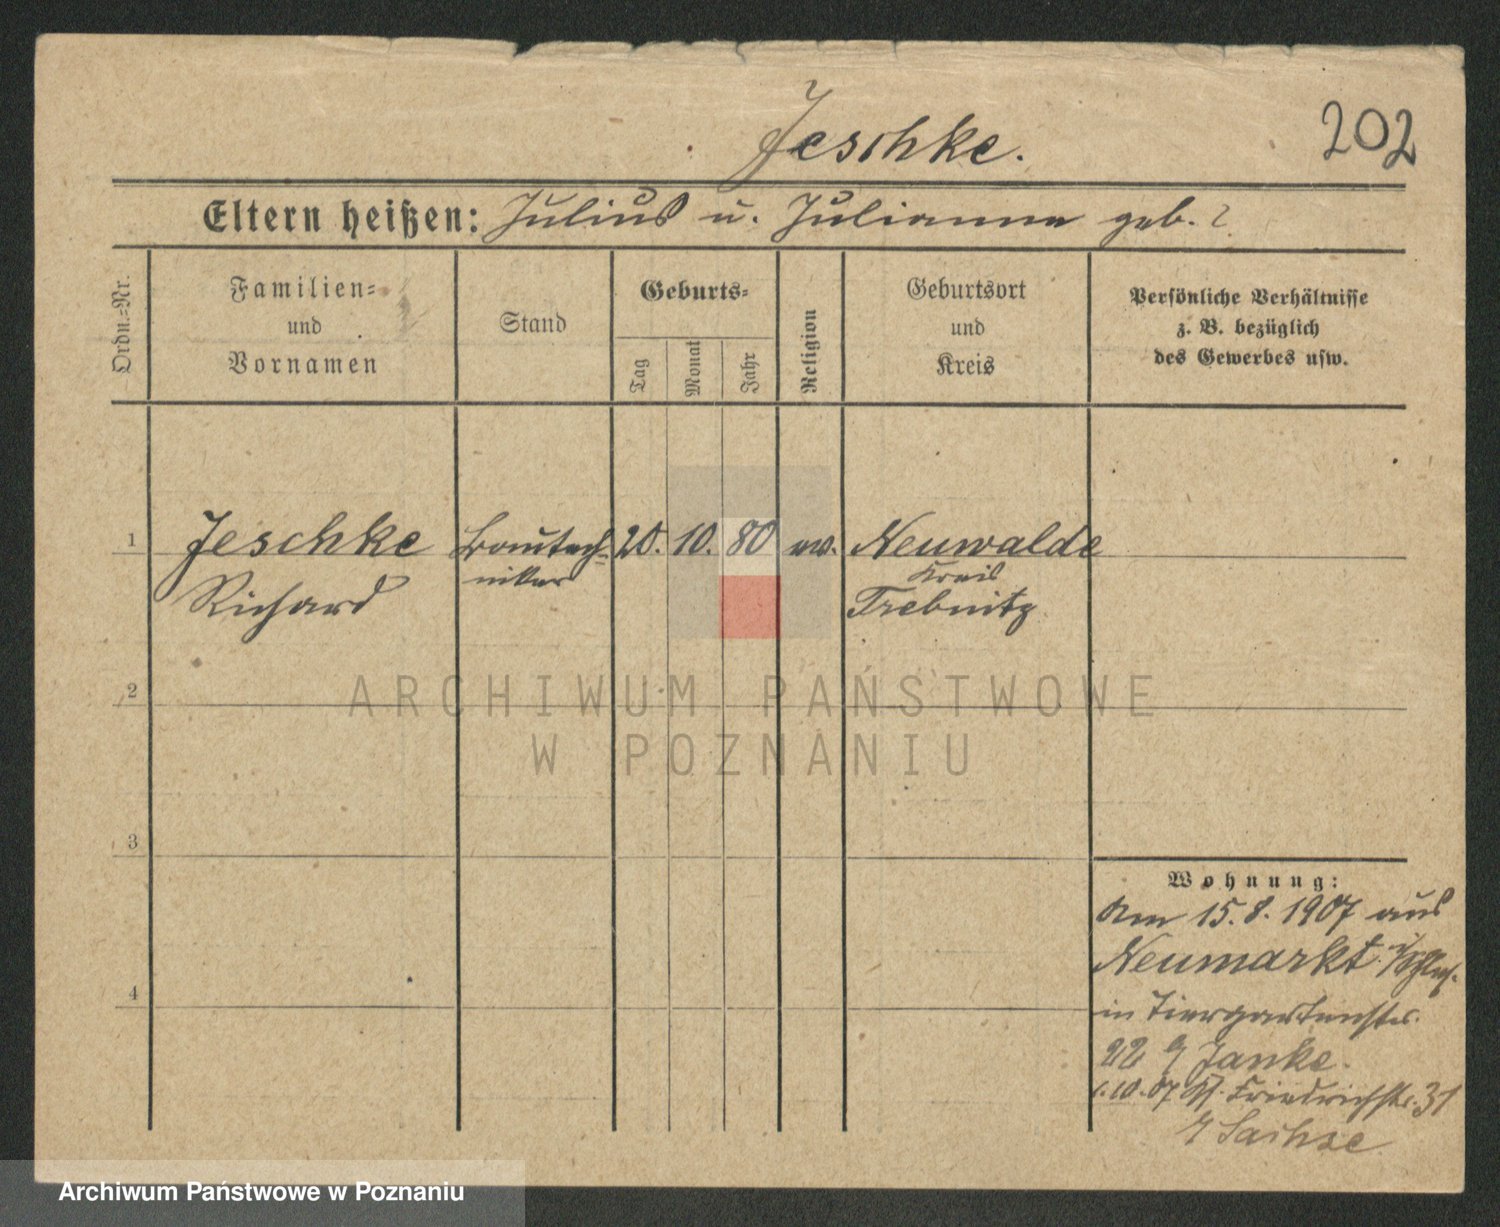 Jeschke.
202
Eltern heißen: Julius u. Julianna geb. ?
Ordn.=Nr.
Familien=
und
Vornamen
Stand
Geburts=
Tag
Monat
Jahr
Religion
Geburtsort
und
Kreis
Persönliche Verhältnisse
z. B. bezüglich
des Gewerbes usw.
1
Jeschke
Richard
Bautech=
niker
20. 10. 80
ev.
Neuwalde
Kreis
Trebnitz
2
ARCHIWUM PAŃSTWOWE
W POZNANIU
3
4
Wohnung:
Am 15.8.1907 aus
Neumarkt
in Tiergartenstr.
22 Janke.
1.10.07 Friedrichstr. 31
Sachse
Archiwum Państwowe w Poznaniu